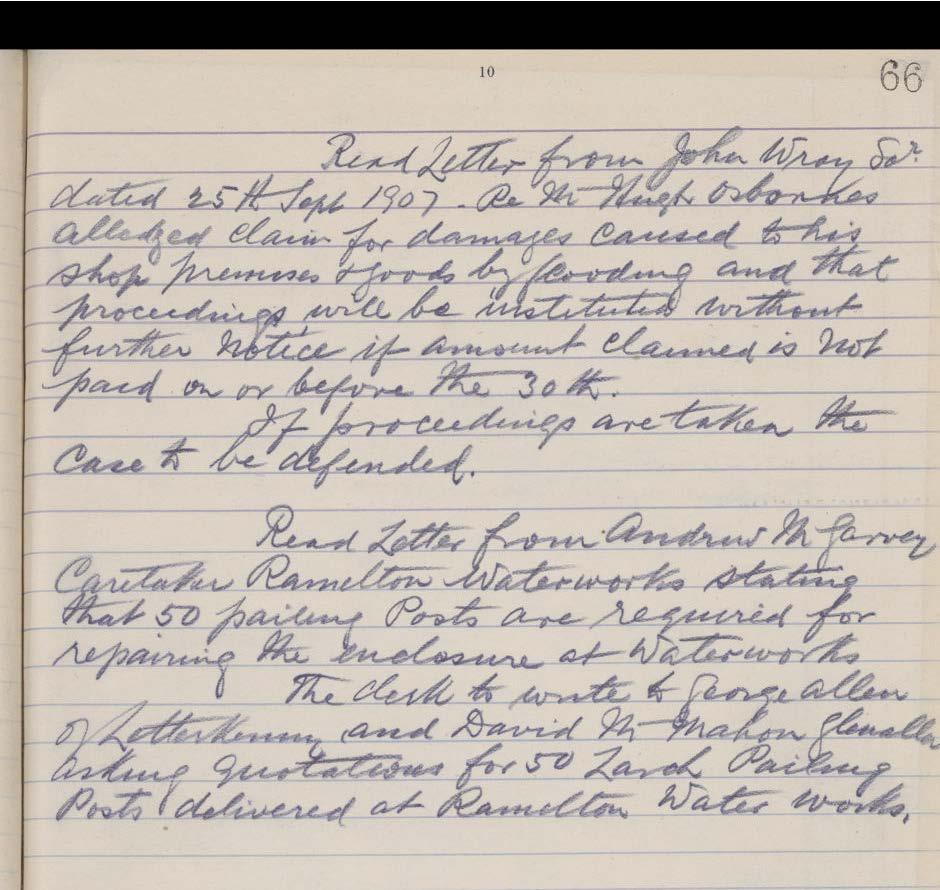 10
66
Read Letter from John Wray Solr.
dated 25th Sept 1907. Re Mr Hugh Osbornes
alledged claim for damages caused to his
shop premises & goods by flooding and that
proceedings will be instituted without
further Notice if amount claimed is Not
paid on or before the 30th.
If proceedings are taken the
Case to be defended.
Read Letter from Andrew McGarvey
Caretaker Ramelton Waterworks stating
that 50 pailing Posts are required for
repairing the enclosure at Waterworks
The Clerk to write to George Allen
of Letterkenny and David McMahon Glenalla
asking quotations for 50 Larch Pailing
Posts delivered at Ramelton Water Works.